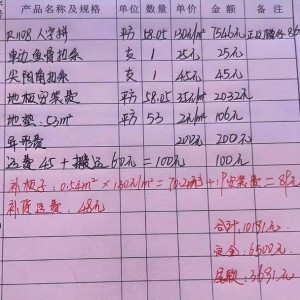 产品名称及规格 单位 数量 单价 金额 备注
R1108人字拼 平方 58.05 130元/m² 7546元
单边鱼骨扣条 支 1 25元 25元
尖阴角扣条 支 1 45元 45元
地板安装费 平方 58.05 35元/m² 2032元
地垫.53m² 平方 53 2元/m² 106元
异形费 200元 200元
运费45+搬运60元=100元 100元
补板子:0.54m²×130元/m²=70.2元+1户安装费=89元
补陵运费.48元
合计:10191元
定金:6500元
尾款:3691元